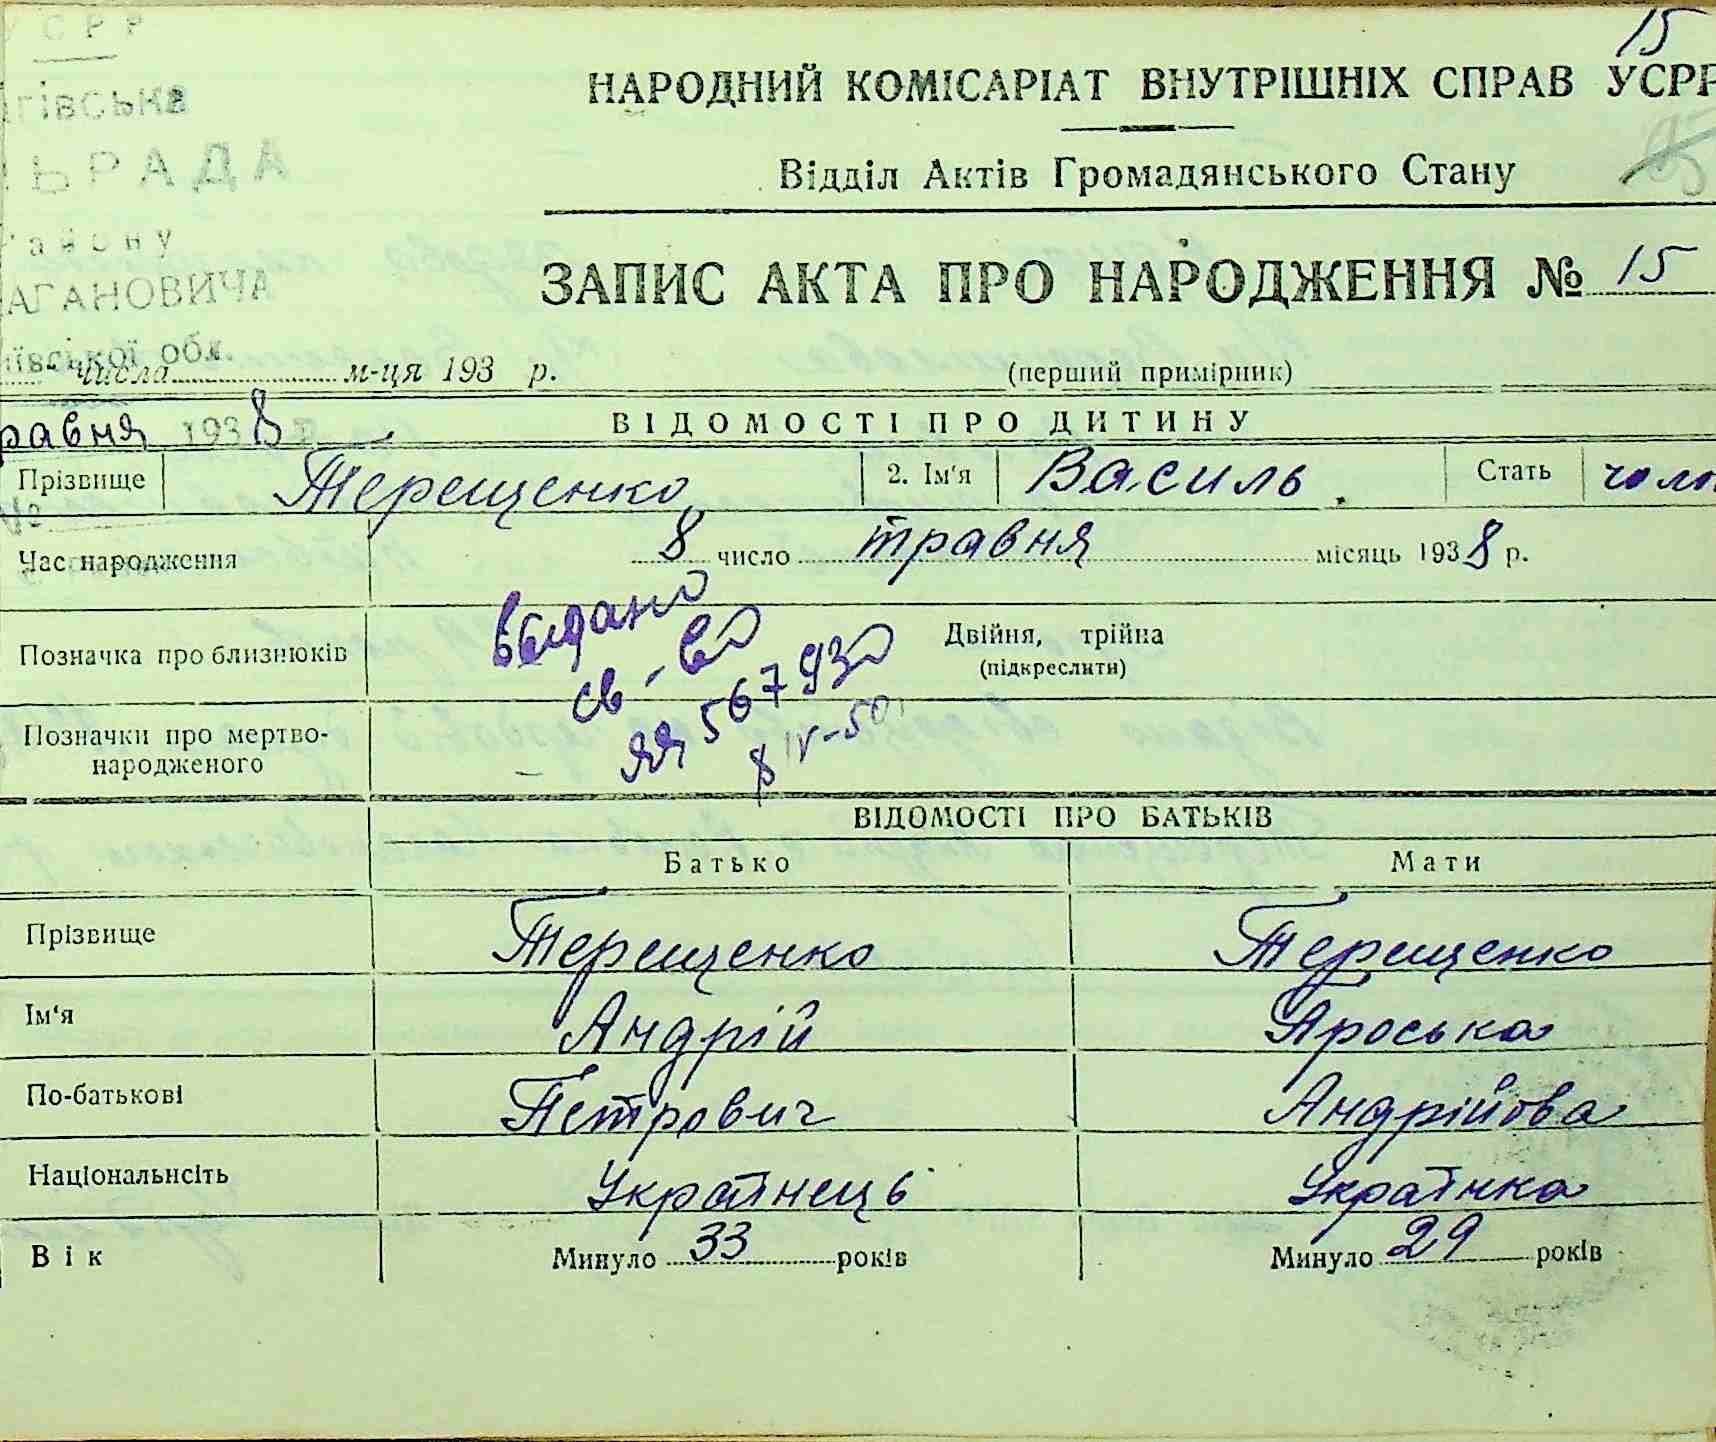 УСРР
15
гівська
НАРОДНИЙ КОМІСАРІАТ ВНУТРІШНІХ СПРАВ УСРР
ЬРАДА
Відділ Актів Громадянського Стану
району
АГАНОВИЧА
ЗАПИС АКТА ПРО НАРОДЖЕННЯ № 15
ївської обл.
числа м-ця 193 р.
(перший примірник)
равня 1938
ВІДОМОСТІ ПРО ДИТИНУ
Прізвище Терещенко 2. Ім'я Василь. Стать чоло
Час народження 8 число травня місяць 1938 р.
Позначка про близнюків
Двійня, трійна
(підкреслити)
Выдано
св-во
ЯЯ 567930
8 IV-50
Позначки про мертво-
народженого –
ВІДОМОСТІ ПРО БАТЬКІВ
Батько Мати
Прізвище Терещенко Терещенко
Ім'я Андрій Проська
По-батькові Петрович Андрійова
Національнсіть Українець Українка
Вік Минуло 33 років Минуло 29 років